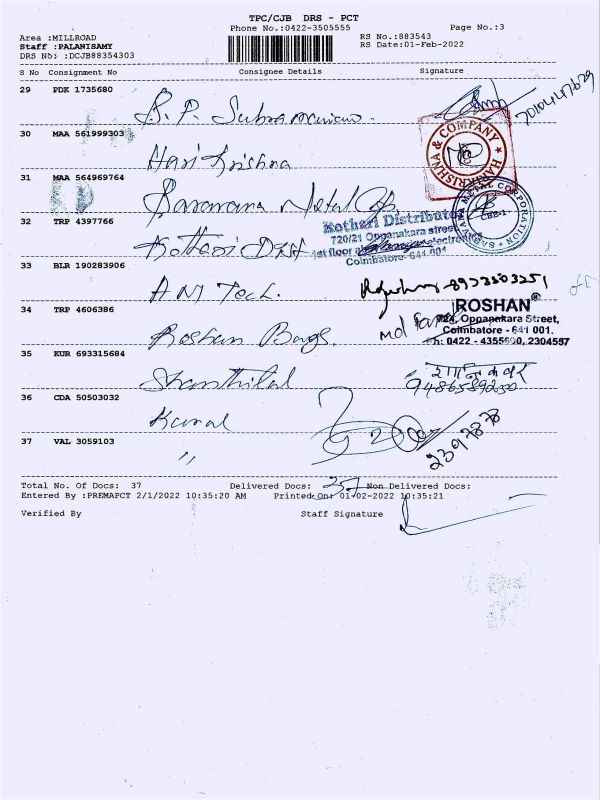 TPC/CJB DRS - PCT
Phone No.:0422-3505555
Page No.:3
Area :MILLROAD
RS No.:883543
Staff :PALANISAMY
RS Date:01-Feb-2022
DRS No: :DCJB88354303
S No Consignment No Consignee Details Signature
29 PDK 1735680
S. P. Subramaniam.
30 MAA 561999303
HARIKRISHNA & COMPANY
Hari Krishna
31 MAA 564969764
Saravana Metal
SARAVANA METAL CORPORATION
CBE-1
32 TRP 4397766
Kothari Distributor
720/21 Oppanakara street
1st floor electronics
Coimbatore-641 001
Kothari
33 BLR 190283906
A M Tech.
34 TRP 4606386
ROSHAN®
724, Oppanakara Street,
Coimbatore - 641 001.
Ph: 0422 - 4355600, 2304557
Roshan Bags.
35 KUR 693315684
Shanthilal
9486589250
36 CDA 50503032
Kamal
37 VAL 3059103
"
2397878
Total No. Of Docs: 37 Delivered Docs: 37 Non Delivered Docs:
Entered By :PREMAPCT 2/1/2022 10:35:20 AM Printed On: 01-02-2022 10:35:21
Verified By Staff Signature